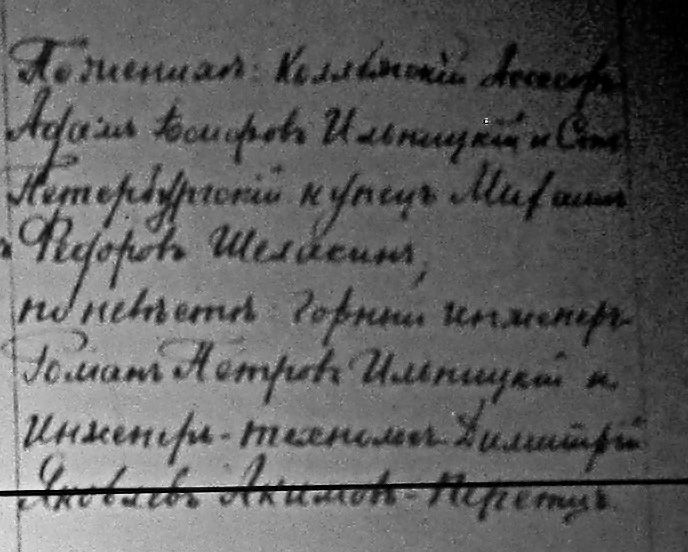 По женихѣ: Коллежскій Ассесоръ
Адамъ Іосифовъ Ильницкій и Спт.
Петербургскій купецъ Михаилъ
Федоровъ Шелякинъ,
по невѣстѣ: Горный инженеръ
Романъ Петровъ Ильницкій и
Инженеръ-технологъ Димитрій
Яковлевъ Акимовъ-Перетцъ.